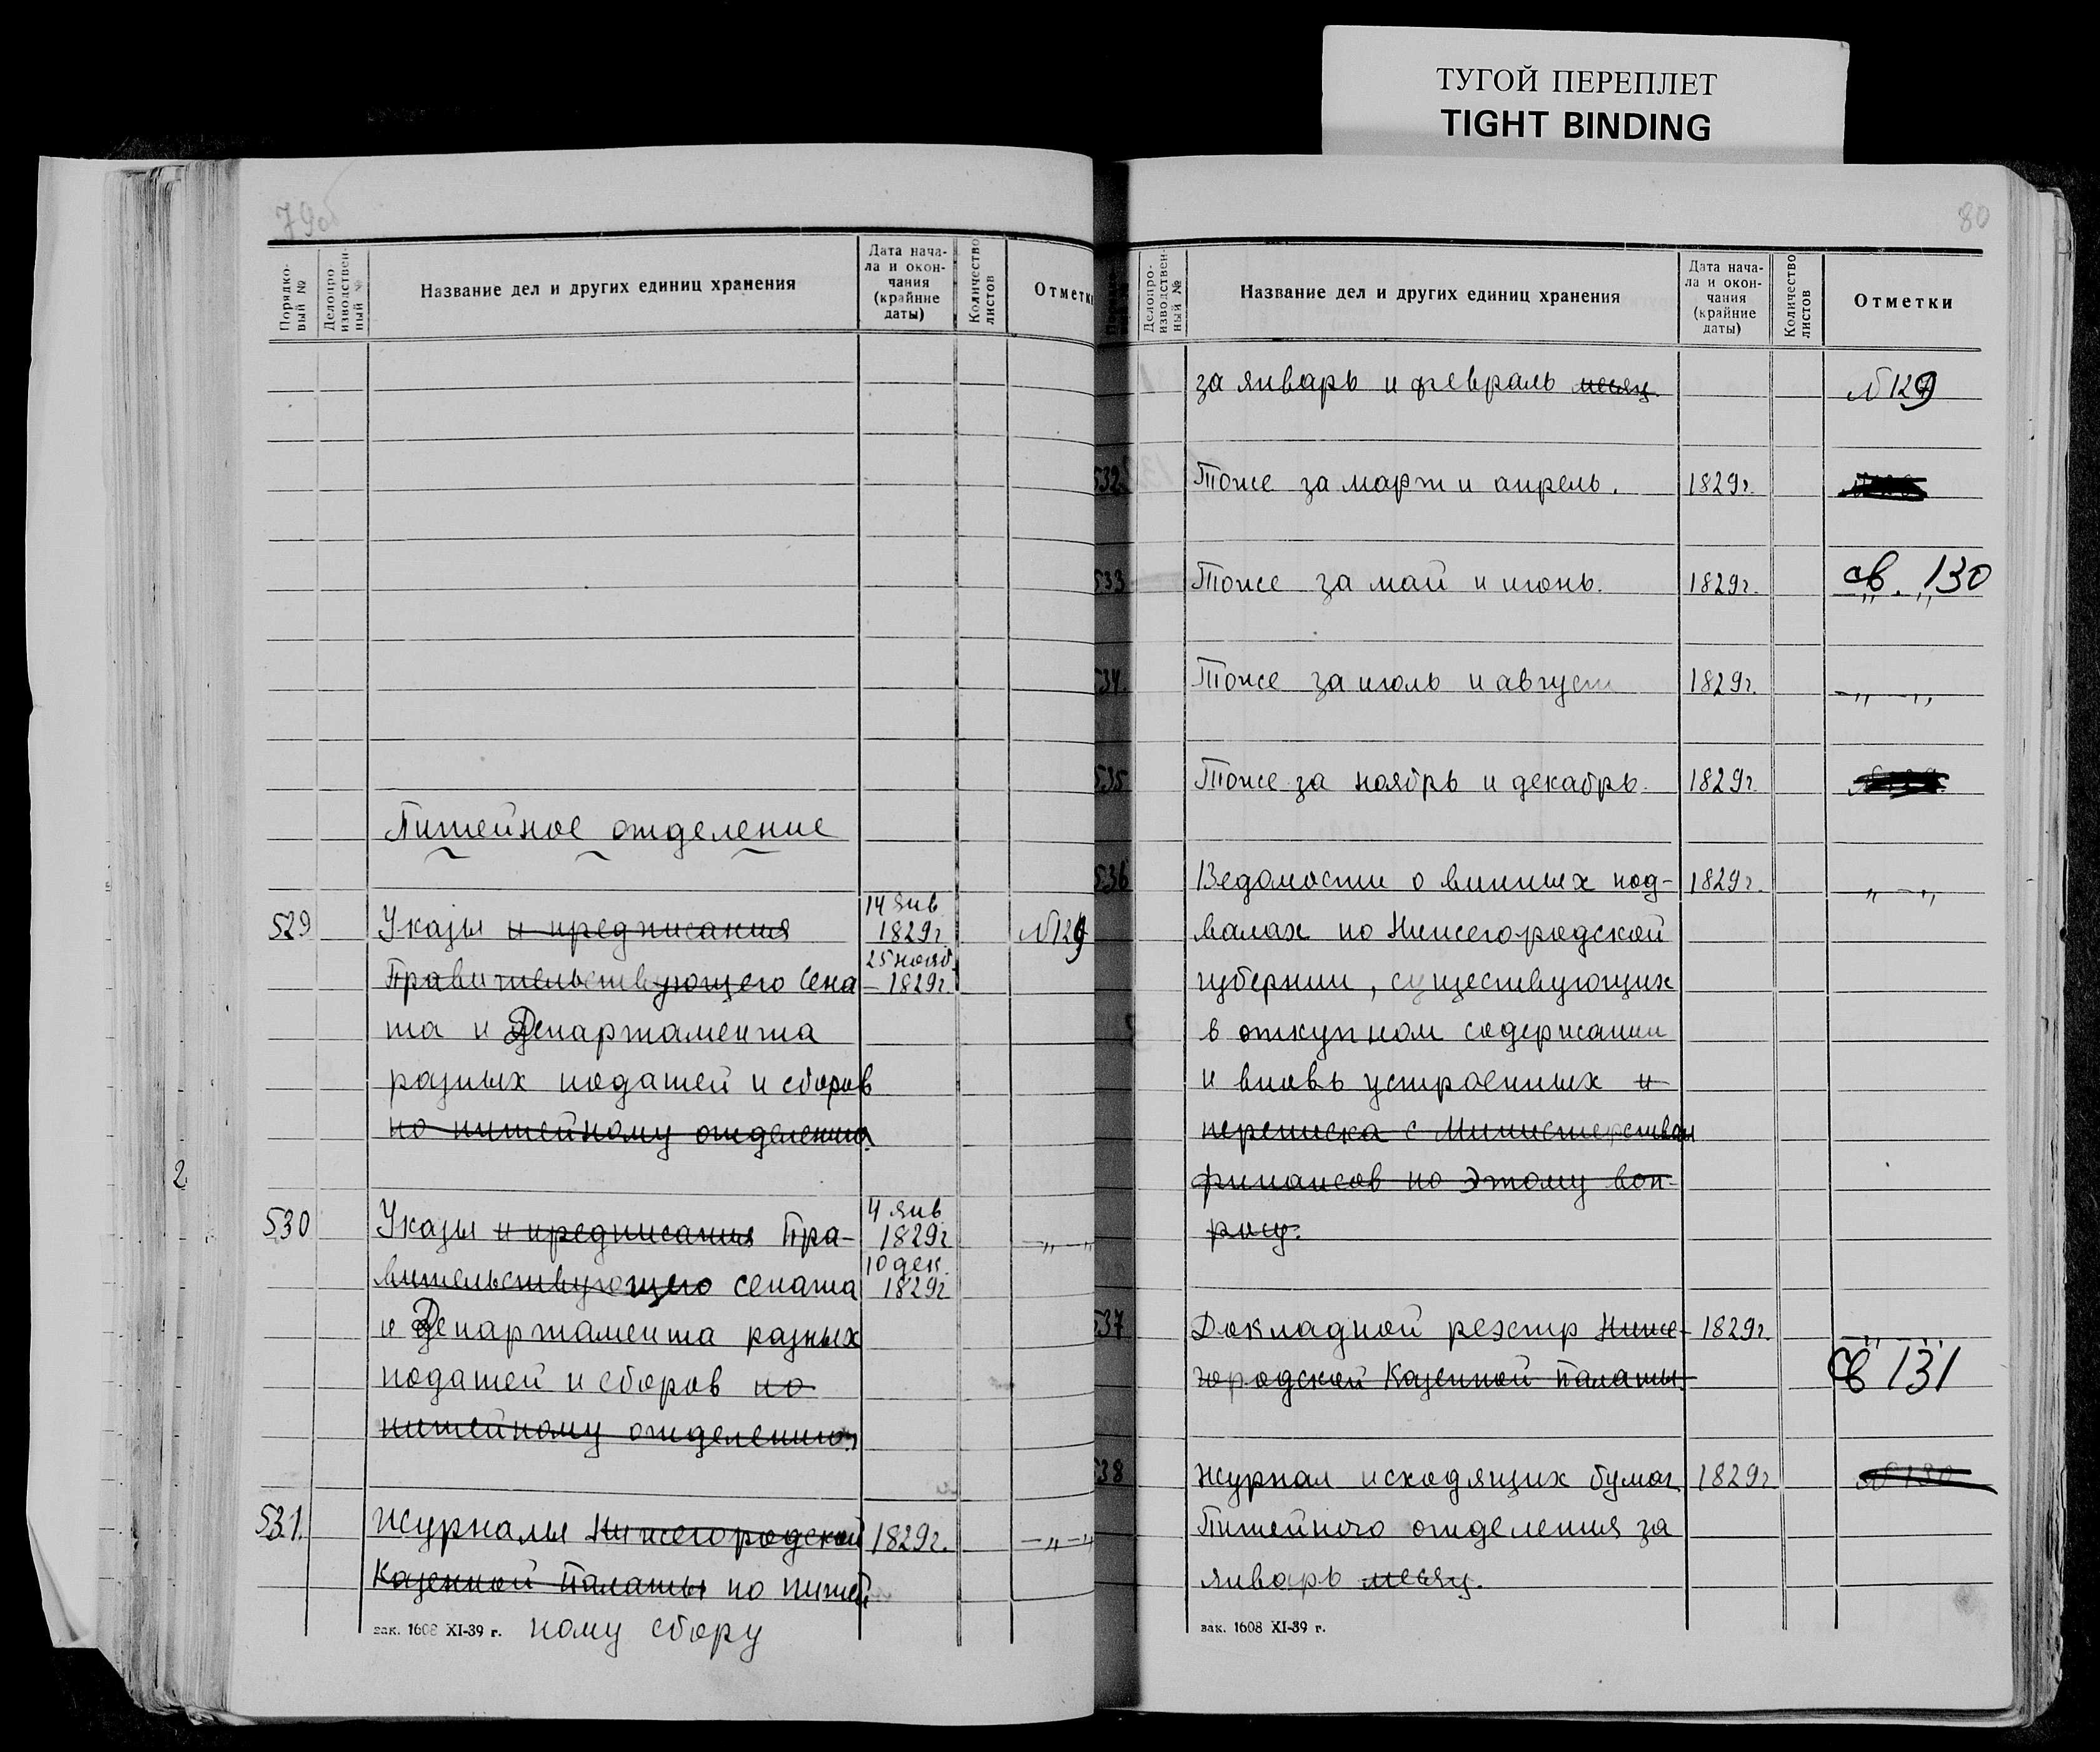 ТУГОЙ ПЕРЕПЛЕТ
TIGHT BINDING
79об
Порядко-
вый №
Делопро-
изводствен-
ный №
Название дел и других единиц хранения
Дата нача-
ла и окон-
чания
(крайние
даты)
Количество
листов
Отметки
Питейное отделение
529 Указы и предписания 14 янв 1829г №129
Правительствующего Сена 25 нояб. – 1829г.
та и Департамента
разных податей и сборов
по питейному отделению.
530 Указы и предписания Пра- 4 янв 1829г –„–„
вительствующего сената 10 дек. 1829г
и Департамента разных
податей и сборов по
питейному отделению.
531. Журналы Нижегородской 1829г. –„–„
Казенной Палаты по питей
ному сбору
зак. 1608 XI-39 г.
80
Делопро-
изводствен-
ный №
Название дел и других единиц хранения
Дата нача-
ла и окон-
чания
(крайние
даты)
Количество
листов
Отметки
за январь и февраль месяц. №129
532 Тоже за март и апрель. 1829г.
533 Тоже за май и июнь. 1829г. св. 130
534. Тоже за июль и август 1829г. –„–„
535 Тоже за ноябрь и декабрь. 1829г.
536 Ведомости о винных под- 1829г. „–„
валах по Нижегородской
губернии, существующих
в откупном содержании
и вновь устроенных и
переписка с Министерством
финансов по этому воп-
росу.
537 Докладной реэстр Ниже- 1829г. „ „
городской Казенной Палаты. св 131
538 Журнал исходящих бумаг 1829г №130
Питейного отделения за
январь месяц.
зак. 1608 XI-39 г.
2